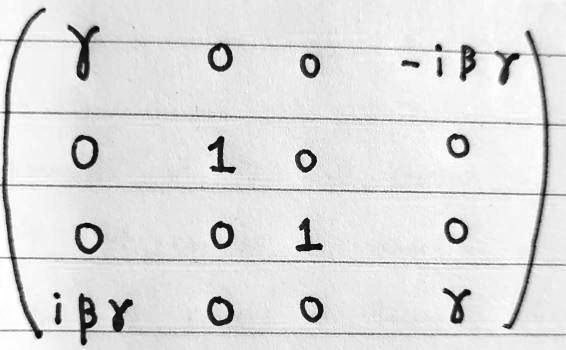 γ 0 0 -iβγ
0 1 0 0
0 0 1 0
iβγ 0 0 γ